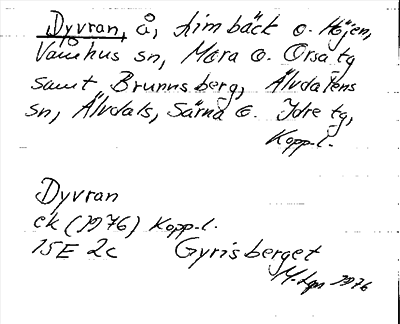 Dyvran, å, Limbäck o. Höjen,
Våmhus sn, Mora o. Orsa tg
samt Brunnsberg, Älvdalens
sn, Älvdals, Särna o. Idre tg,
Kopp.l.
Dyvran
ek (1976) Kopp.l.
15E 2c Gyrisberget
1976